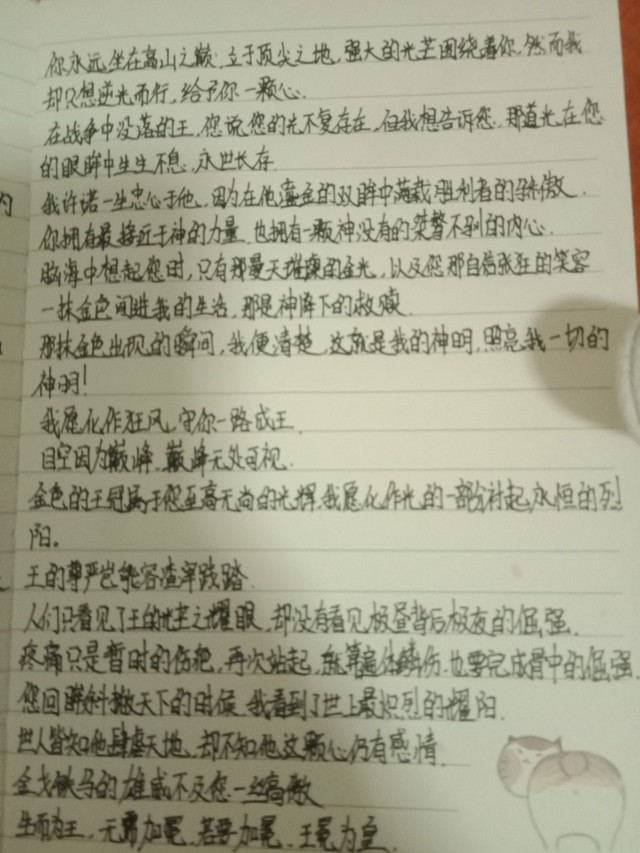 你永远坐在高山之巅,立于顶尖之地,强大的光芒围绕着你,然而我
却只想逆光而行,给予你一颗心.
在战争中没落的王,您说您的光不复存在,但我想告诉您,那道光在您
的眼眸中生生不息,永世长存.
我许诺一生忠心于他,因为在他鎏金的双眸中满载胜利者的骄傲.
你拥有最接近于神的力量,也拥有一颗神没有的桀骜不驯的内心.
脑海中想起您时,只有那漫天璀璨的金光,以及您那自信张狂的笑容
一抹金色闯进我的生活,那是神降下的救赎.
那抹金色出现的瞬间,我便清楚,这就是我的神明,照亮我一切的
神明!
我愿化作狂风,守你一路成王.
目空因为巅峰,巅峰无处可视.
金色的王冠属于您至高无尚的光辉,我愿化作光的一部分衬起永恒的烈
阳。
王的尊严岂能容渣宰践踏.
人们只看见了王的光芒之耀眼,却没有看见极昼背后极夜的倔强.
疼痛只是暂时的伤疤,再次站起,就算遍体鳞伤,也要完成骨中的倔强.
您回眸天下的时候,我看到了世上最炽烈的耀阳.
世人皆知他肆虐天地,却不知他这颗心仍有感情.
金戈铁马的雄威不及您一丝高傲
生而为王,无需加冕,若要加冕,王冕为皇.
内